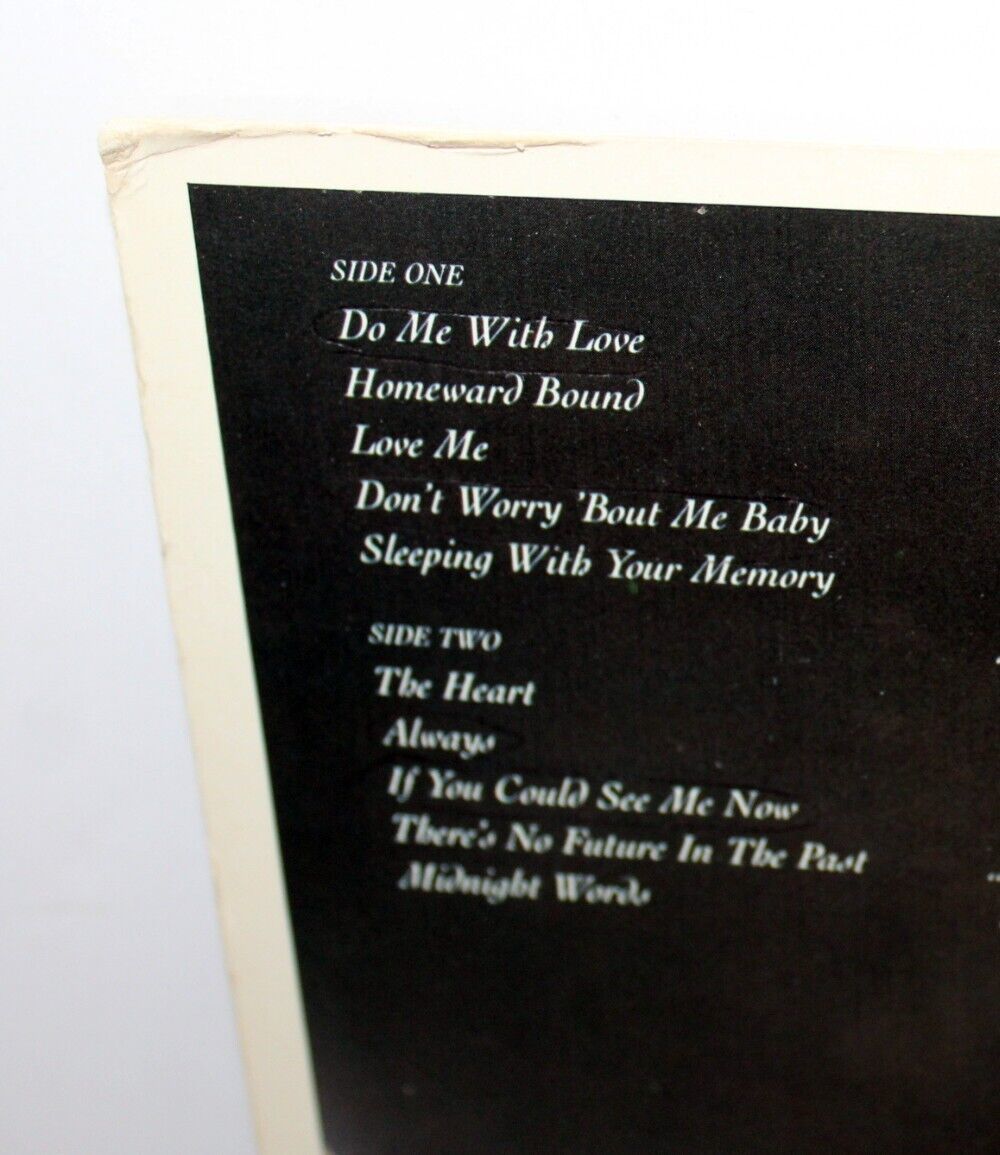 SIDE ONE
Do Me With Love
Homeward Bound
Love Me
Don't Worry 'Bout Me Baby
Sleeping With Your Memory
SIDE TWO
The Heart
Always
If You Could See Me Now
There's No Future In The Past
Midnight Words